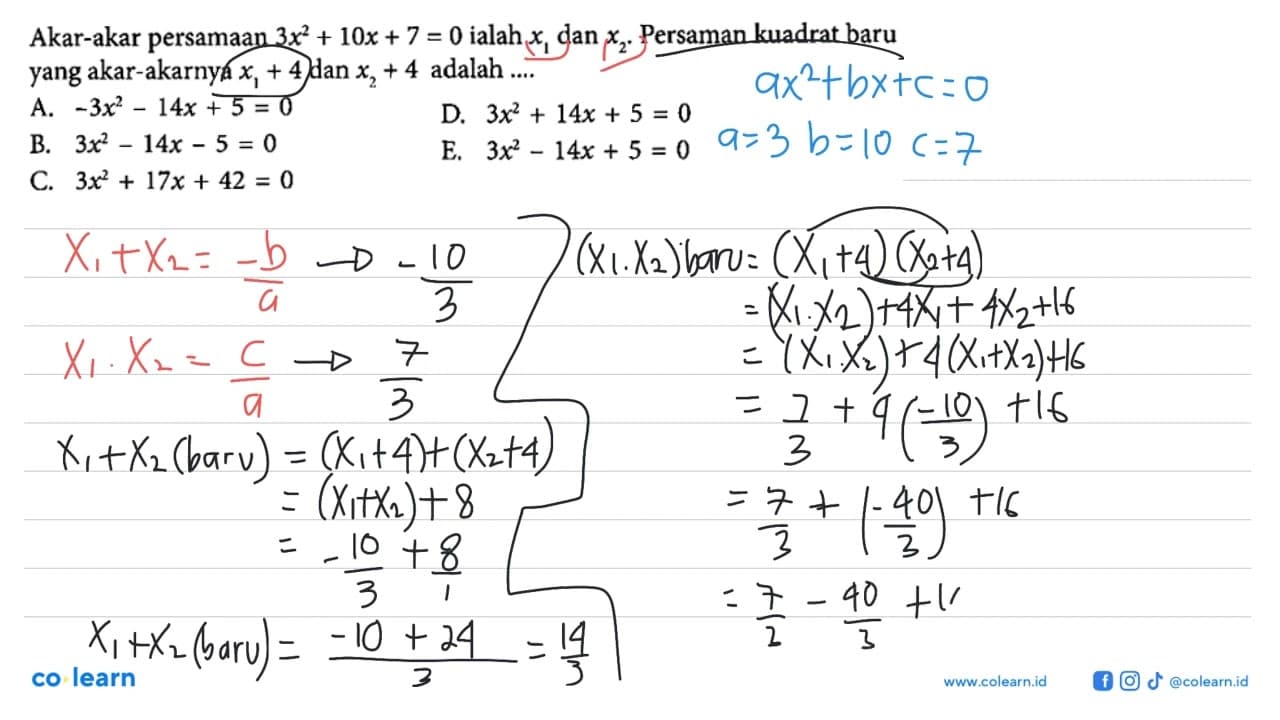 Akar-akar persamaan 3x² + 10x + 7 = 0 ialah x₁ dan x₂. Persaman kuadrat baru
yang akar-akarnya x₁ + 4 dan x₂ + 4 adalah ....
A. -3x² - 14x + 5 = 0
B. 3x² - 14x - 5 = 0
C. 3x² + 17x + 42 = 0
D. 3x² + 14x + 5 = 0
E. 3x² - 14x + 5 = 0
ax²+bx+c=0
a=3 b=10 c=7
X₁+X₂ = -b/a → -10/3
X₁.X₂ = c/a → 7/3
X₁+X₂ (baru) = (X₁+4)+(X₂+4)
= (X₁+X₂)+8
= -10/3 + 8/1
X₁+X₂ (baru) = (-10+24)/3 = 14/3
(X₁.X₂) baru = (X₁+4)(X₂+4)
= (X₁.X₂)+4X₁+4X₂+16
= (X₁.X₂)+4(X₁+X₂)+16
= 7/3 + 4(-10/3) +16
= 7/3 + (-40/3) +16
= 7/2 - 40/3 +1
co learn
www.colearn.id
@colearn.id